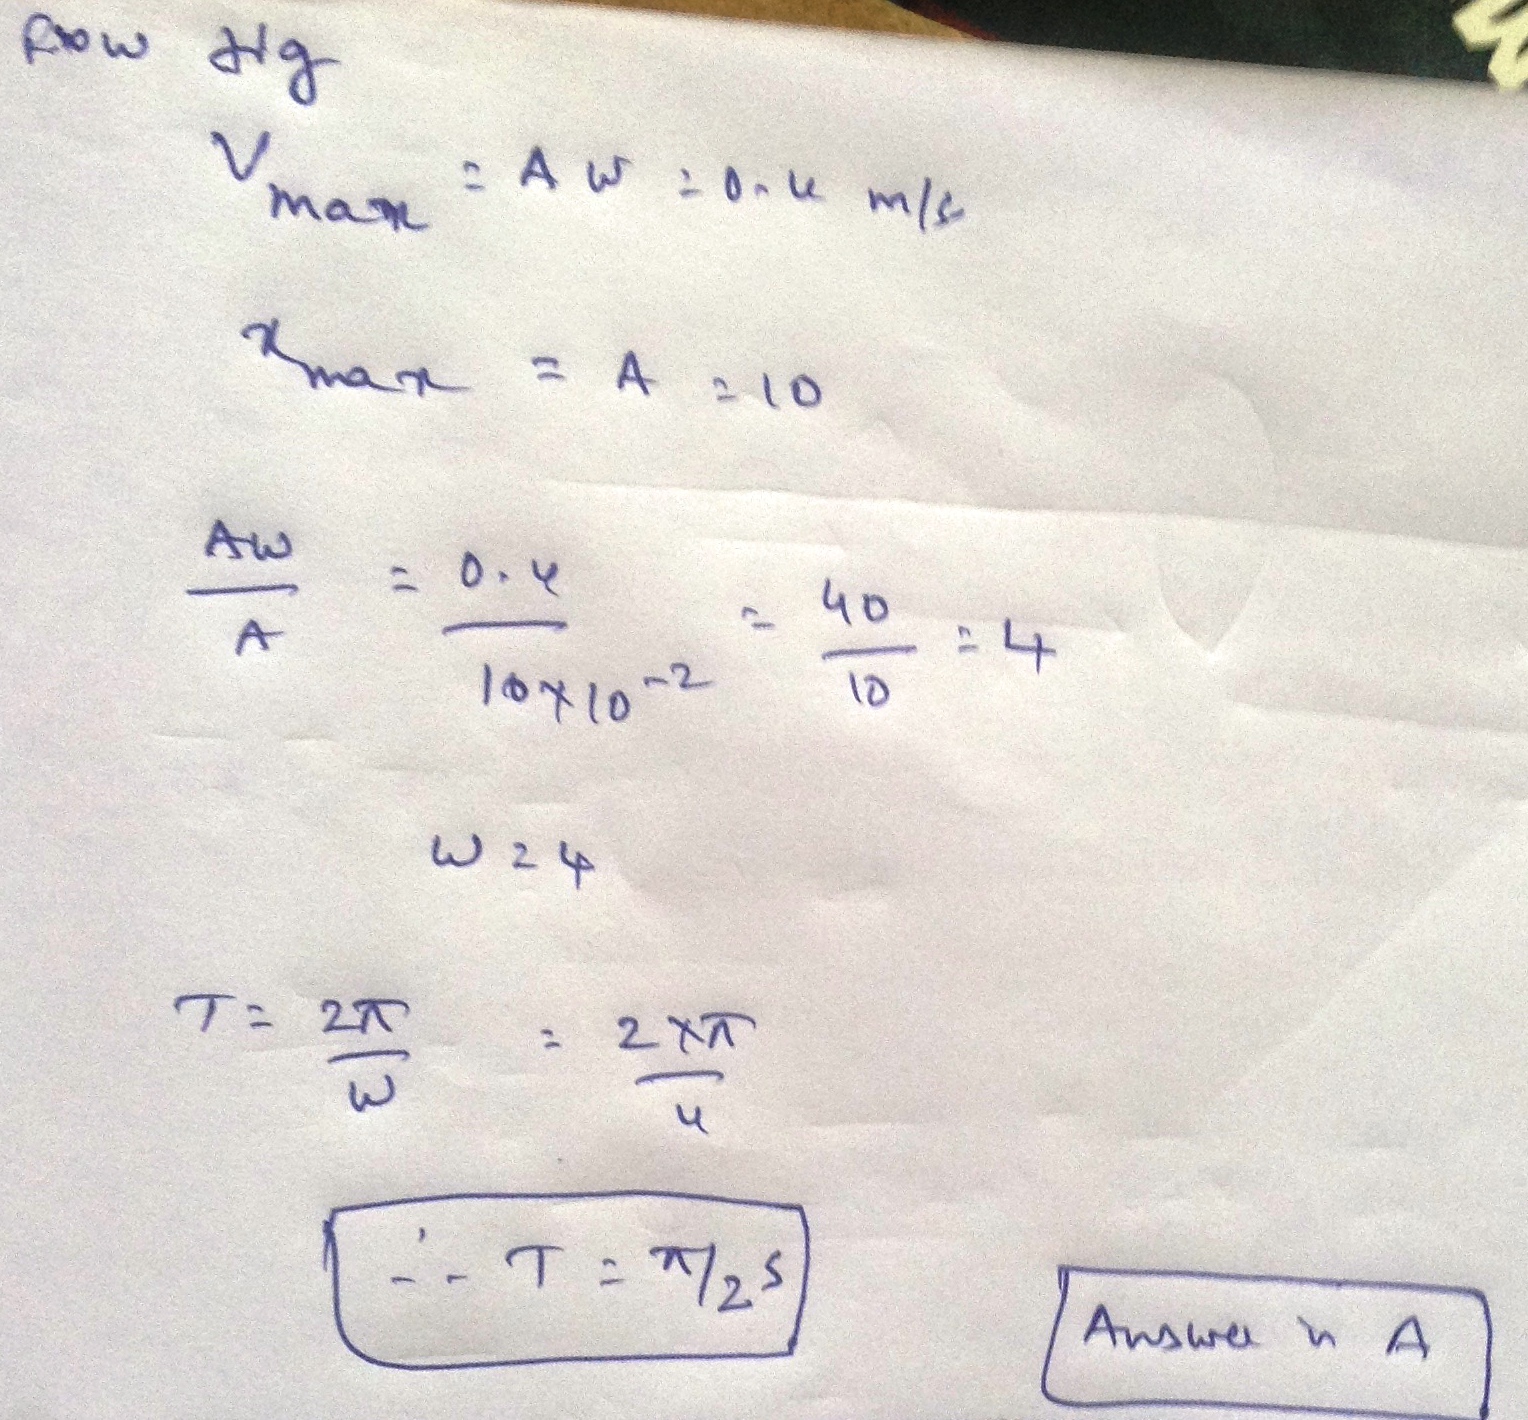 From fig
Vmax = Aω = 0.4 m/s
xmax = A = 10
Aω/A = 0.4/10×10⁻² = 40/10 = 4
ω = 4
T = 2π/ω = 2×π/4
∴ T = π/2 s
Answer is A